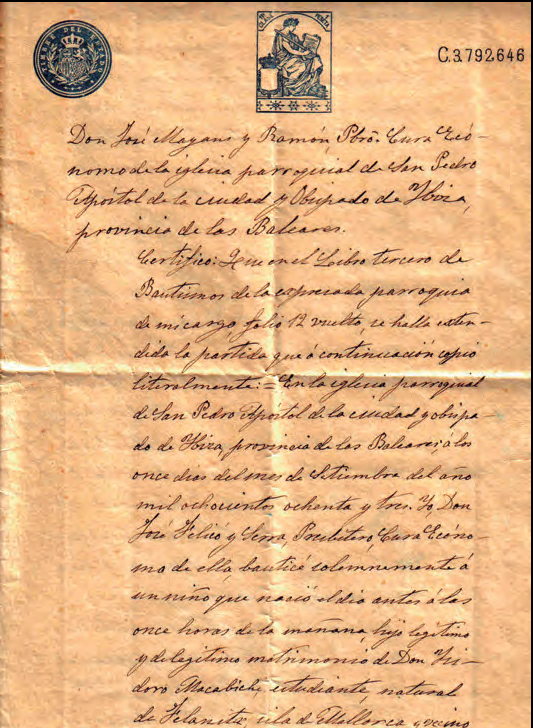 TIMBRE DEL ESTADO
C.3.792.646
Don José Mayans y Ramón, Pbro. Cura Ecó-
nomo de la iglesia parroquial de San Pedro
Apóstol de la ciudad y Obispado de Ybiza,
provincia de las Baleares.
Certifico: Que en el Libro tercero de
Bautismos de la espresada parroquia
de mi cargo folio 12 vuelto, se halla esten-
dida la partida que á continuación copio
literalmente:= En la iglesia parroquial
de San Pedro Apóstol de la ciudad y obispa-
do de Ybiza, provincia de las Baleares; á los
once dias del mes de Setiembre del año
mil ochocientos ochenta y tres. Yo, Don
José y Serra, Presbítero, Cura Ecóno-
mo de ella, bauticé solemnemente á
un niño que nació el dia antes á las
once horas de la mañana, hijo legítimo
y de legítimo matrimonio de Don Ysi-
doro Macabich, estudiante, natural
de Felanitx, isla de Mallorca y vecino